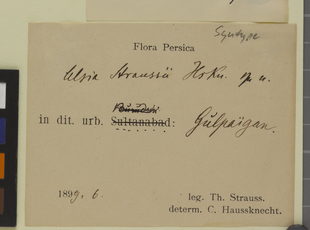 Syntype
Flora Persica
Celsia Straussii Hskn. sp. n.
Burudschird
in dit. urb. Sultanabad: Gulpaigan.
1899. 6.
leg. Th. Strauss.
determ. C. Haussknecht.